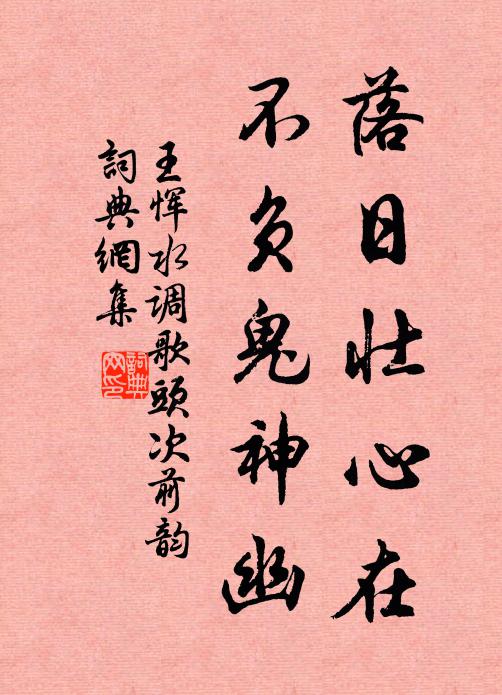 落日壮心在
不负鬼神幽
王恽水调歌頭次前韵
詞典網集
詞典
网印